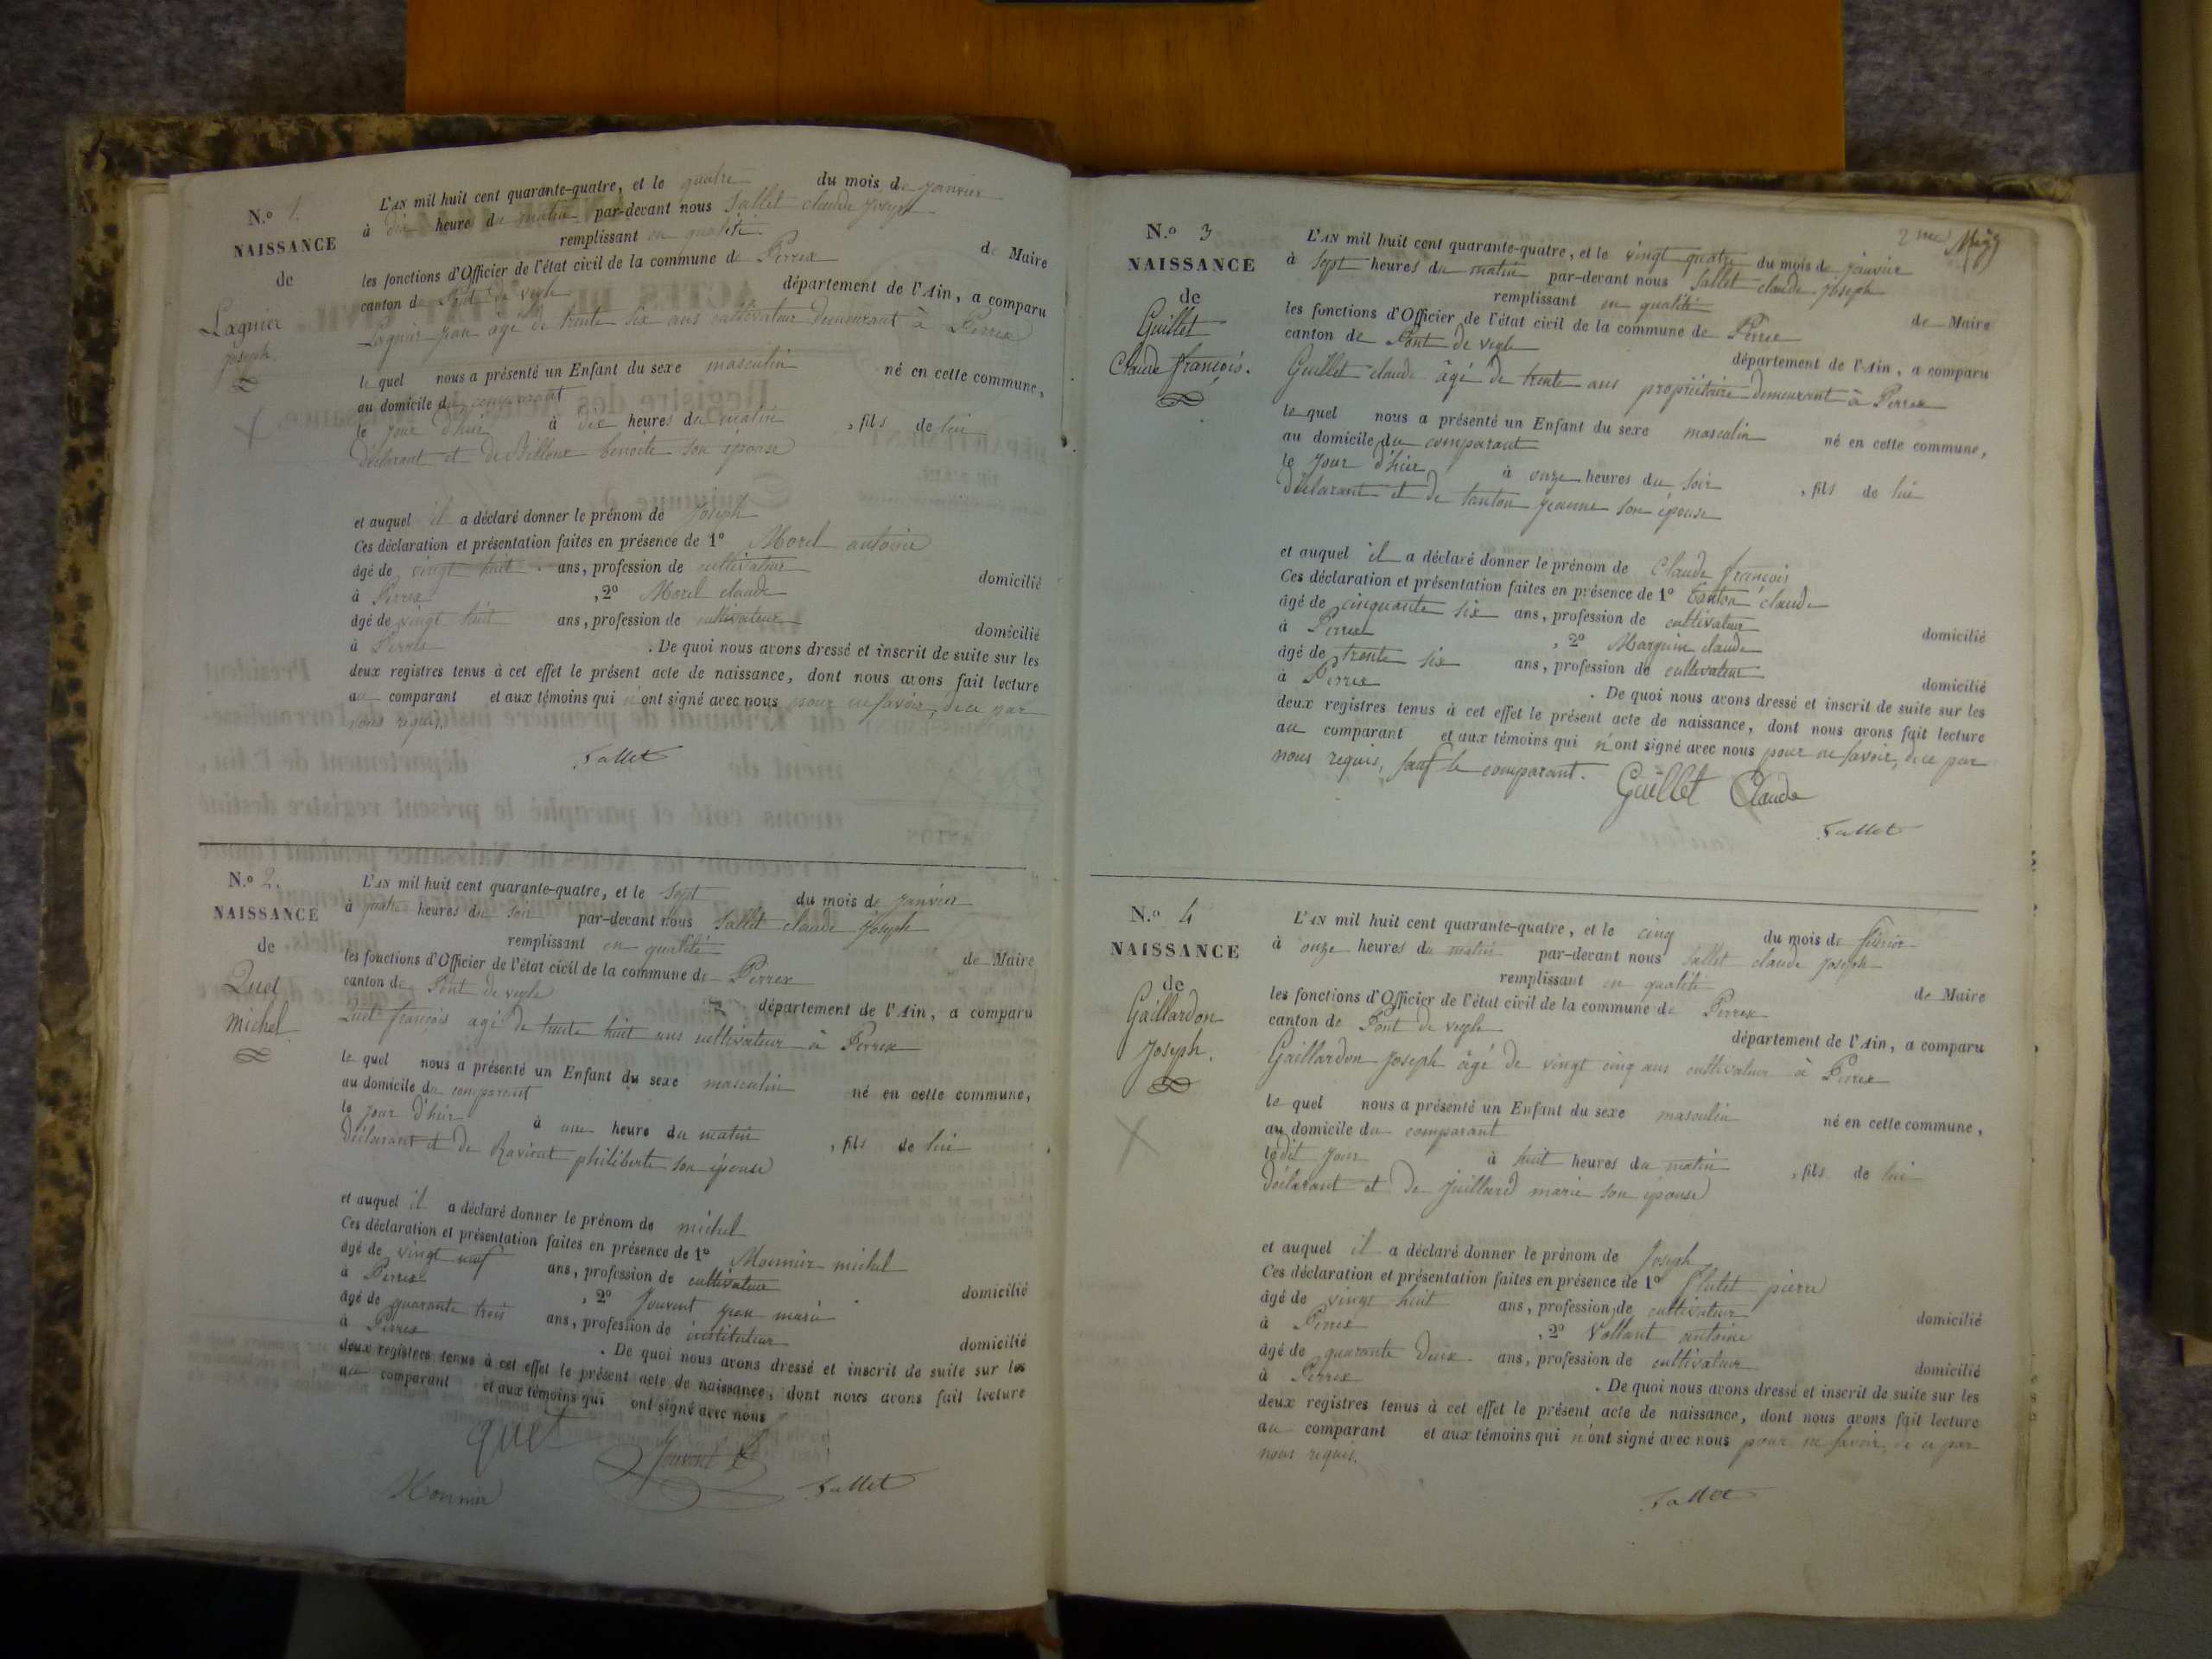 N.o 1.
NAISSANCE
de
Lagnier
joseph.
L'AN mil huit cent quarante-quatre, et le quatre du mois de janvier
à dix heures du matin par-devant nous Sallet claude joseph
remplissant en qualité de Maire
les fonctions d'Officier de l'état civil de la commune de Perrex
canton de Pont de veyle département de l'Ain, a comparu
Lagnier jean âgé de trente six ans cultivateur demeurant à Perrex
le quel nous a présenté un Enfant du sexe masculin né en cette commune,
au domicile du comparant
le jour d'hier à dix heures du matin, fils de lui
déclarant et de benoite son épouse
et auquel il a déclaré donner le prénom de joseph
Ces déclaration et présentation faites en présence de 1o Morel antoine
âgé de vingt huit ans, profession de cultivateur domicilié
à Perrex, 2o Morel claude
âgé de vingt huit ans, profession de cultivateur domicilié
à Perrex. De quoi nous avons dressé et inscrit de suite sur les
deux registres tenus à cet effet le présent acte de naissance, dont nous avons fait lecture
au comparant et aux témoins qui n'ont signé avec nous pour ne savoir, de ce par
nous requis.
Sallet
N.o 2.
NAISSANCE
de
Quet
michel
L'AN mil huit cent quarante-quatre, et le sept du mois de janvier
à quatre heures du soir par-devant nous Sallet claude joseph
remplissant en qualité de Maire
les fonctions d'Officier de l'état civil de la commune de Perrex
canton de Pont de veyle département de l'Ain, a comparu
Quet françois agé de trente huit ans cultivateur à Perrex
le quel nous a présenté un Enfant du sexe masculin né en cette commune,
au domicile du comparant
le jour d'hier à une heure du matin, fils de lui
déclarant et de philiberte son épouse
et auquel il a déclaré donner le prénom de michel
Ces déclaration et présentation faites en présence de 1o Monnier michel
âgé de vingt neuf ans, profession de cultivateur domicilié
à Perrex, 2o Jouvent jean marie
âgé de quarante trois ans, profession de instituteur domicilié
à Perrex. De quoi nous avons dressé et inscrit de suite sur les
deux registres tenus à cet effet le présent acte de naissance, dont nous avons fait lecture
au comparant et aux témoins qui ont signé avec nous
quet Jouvent
Monnier Sallet
2me
N.o 3
NAISSANCE
de
Guillet
Claude françois.
L'AN mil huit cent quarante-quatre, et le vingt quatre du mois de janvier
à sept heures du matin par-devant nous Sallet claude joseph
remplissant en qualité de Maire
les fonctions d'Officier de l'état civil de la commune de Perrex
canton de Pont de veyle département de l'Ain, a comparu
Guillet claude âgé de trente ans propriétaire demeurant à Perrex
le quel nous a présenté un Enfant du sexe masculin né en cette commune,
au domicile du comparant
le jour d'hier à onze heures du soir, fils de lui
déclarant et de tonton jeanne son épouse
et auquel il a déclaré donner le prénom de Claude françois
Ces déclaration et présentation faites en présence de 1o tonton claude
âgé de cinquante six ans, profession de cultivateur domicilié
à Perrex, 2o Marguin claude
âgé de trente six ans, profession de cultivateur domicilié
à Perrex. De quoi nous avons dressé et inscrit de suite sur les
deux registres tenus à cet effet le présent acte de naissance, dont nous avons fait lecture
au comparant et aux témoins qui n'ont signé avec nous pour ne savoir, de ce par
nous requis, sauf le comparant. Guillet Claude
Sallet
N.o 4
NAISSANCE
de
Gaillardon
Joseph.
L'AN mil huit cent quarante-quatre, et le cinq du mois de février
à onze heures du matin par-devant nous Sallet claude joseph
remplissant en qualité de Maire
les fonctions d'Officier de l'état civil de la commune de Perrex
canton de Pont de veyle département de l'Ain, a comparu
Gaillardon Joseph âgé de vingt cinq ans cultivateur à Perrex
le quel nous a présenté un Enfant du sexe masculin né en cette commune,
au domicile du comparant
ledit jour à huit heures du matin, fils de lui
déclarant et de juillard marie son épouse
et auquel il a déclaré donner le prénom de Joseph
Ces déclaration et présentation faites en présence de 1o pierre
âgé de vingt huit ans, profession de cultivateur domicilié
à Perrex, 2o Vollant antoine
âgé de quarante deux ans, profession de cultivateur domicilié
à Perrex. De quoi nous avons dressé et inscrit de suite sur les
deux registres tenus à cet effet le présent acte de naissance, dont nous avons fait lecture
au comparant et aux témoins qui n'ont signé avec nous pour ne savoir, de ce par
nous requis.
Sallet